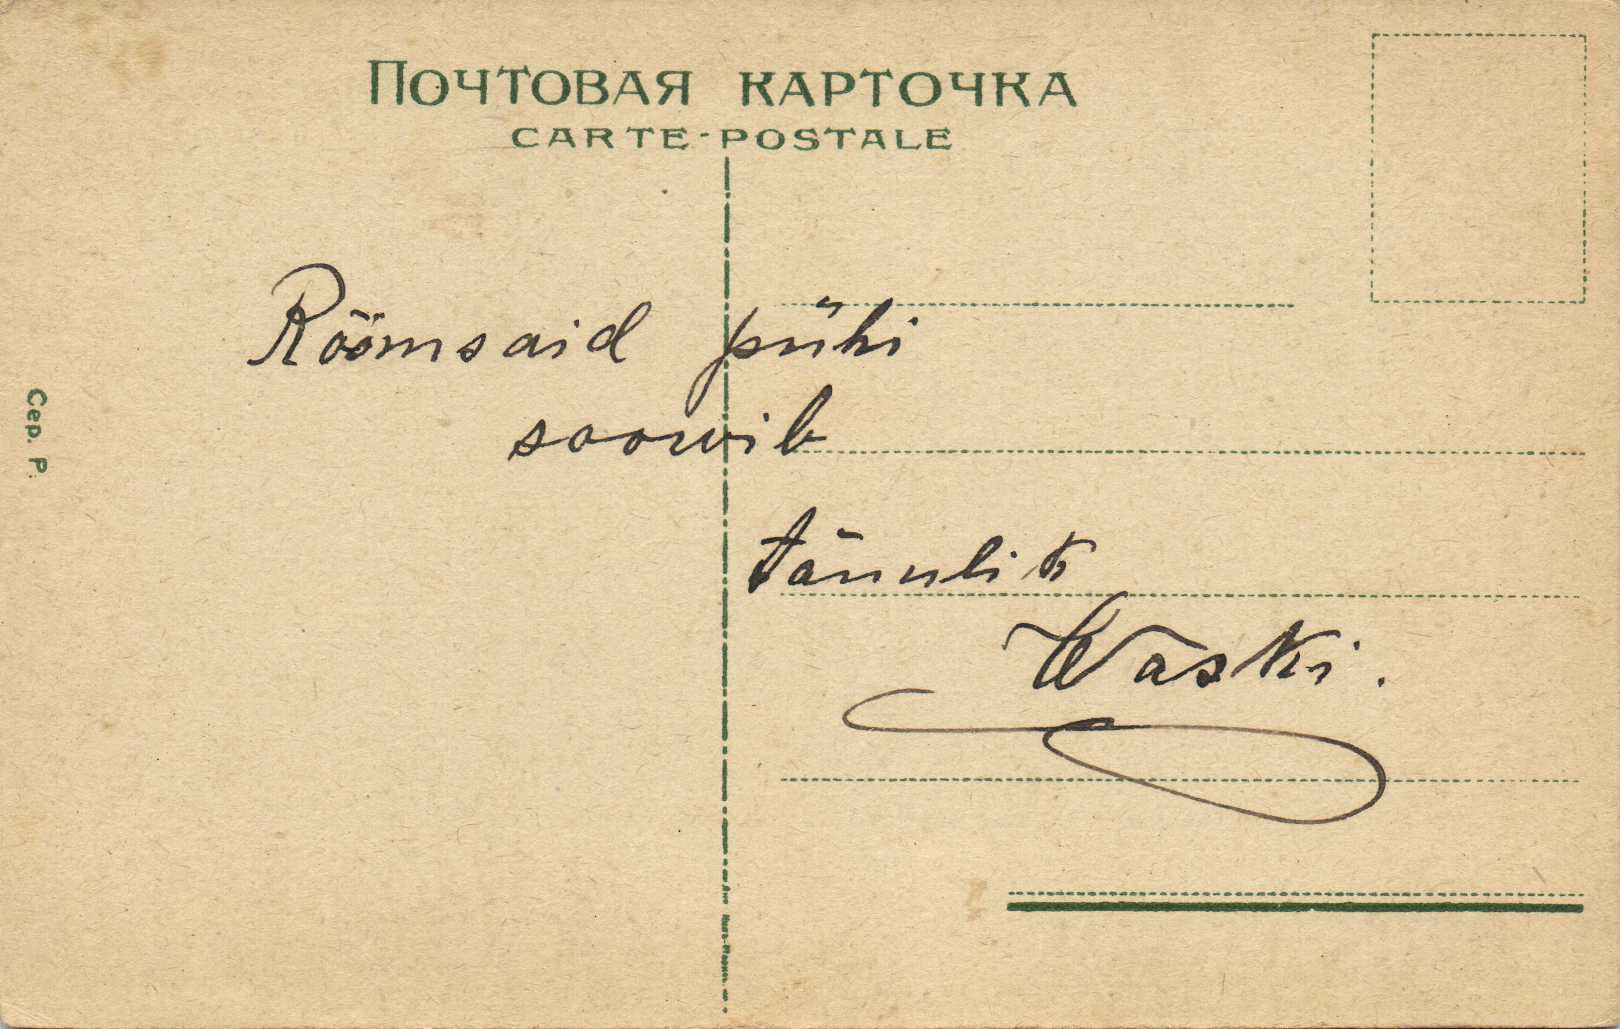 ПОЧТОВАЯ КАРТОЧКА
CARTE-POSTALE
Rõõmsaid pühi
soowib
tänulik
Waski.
Сер. Р.